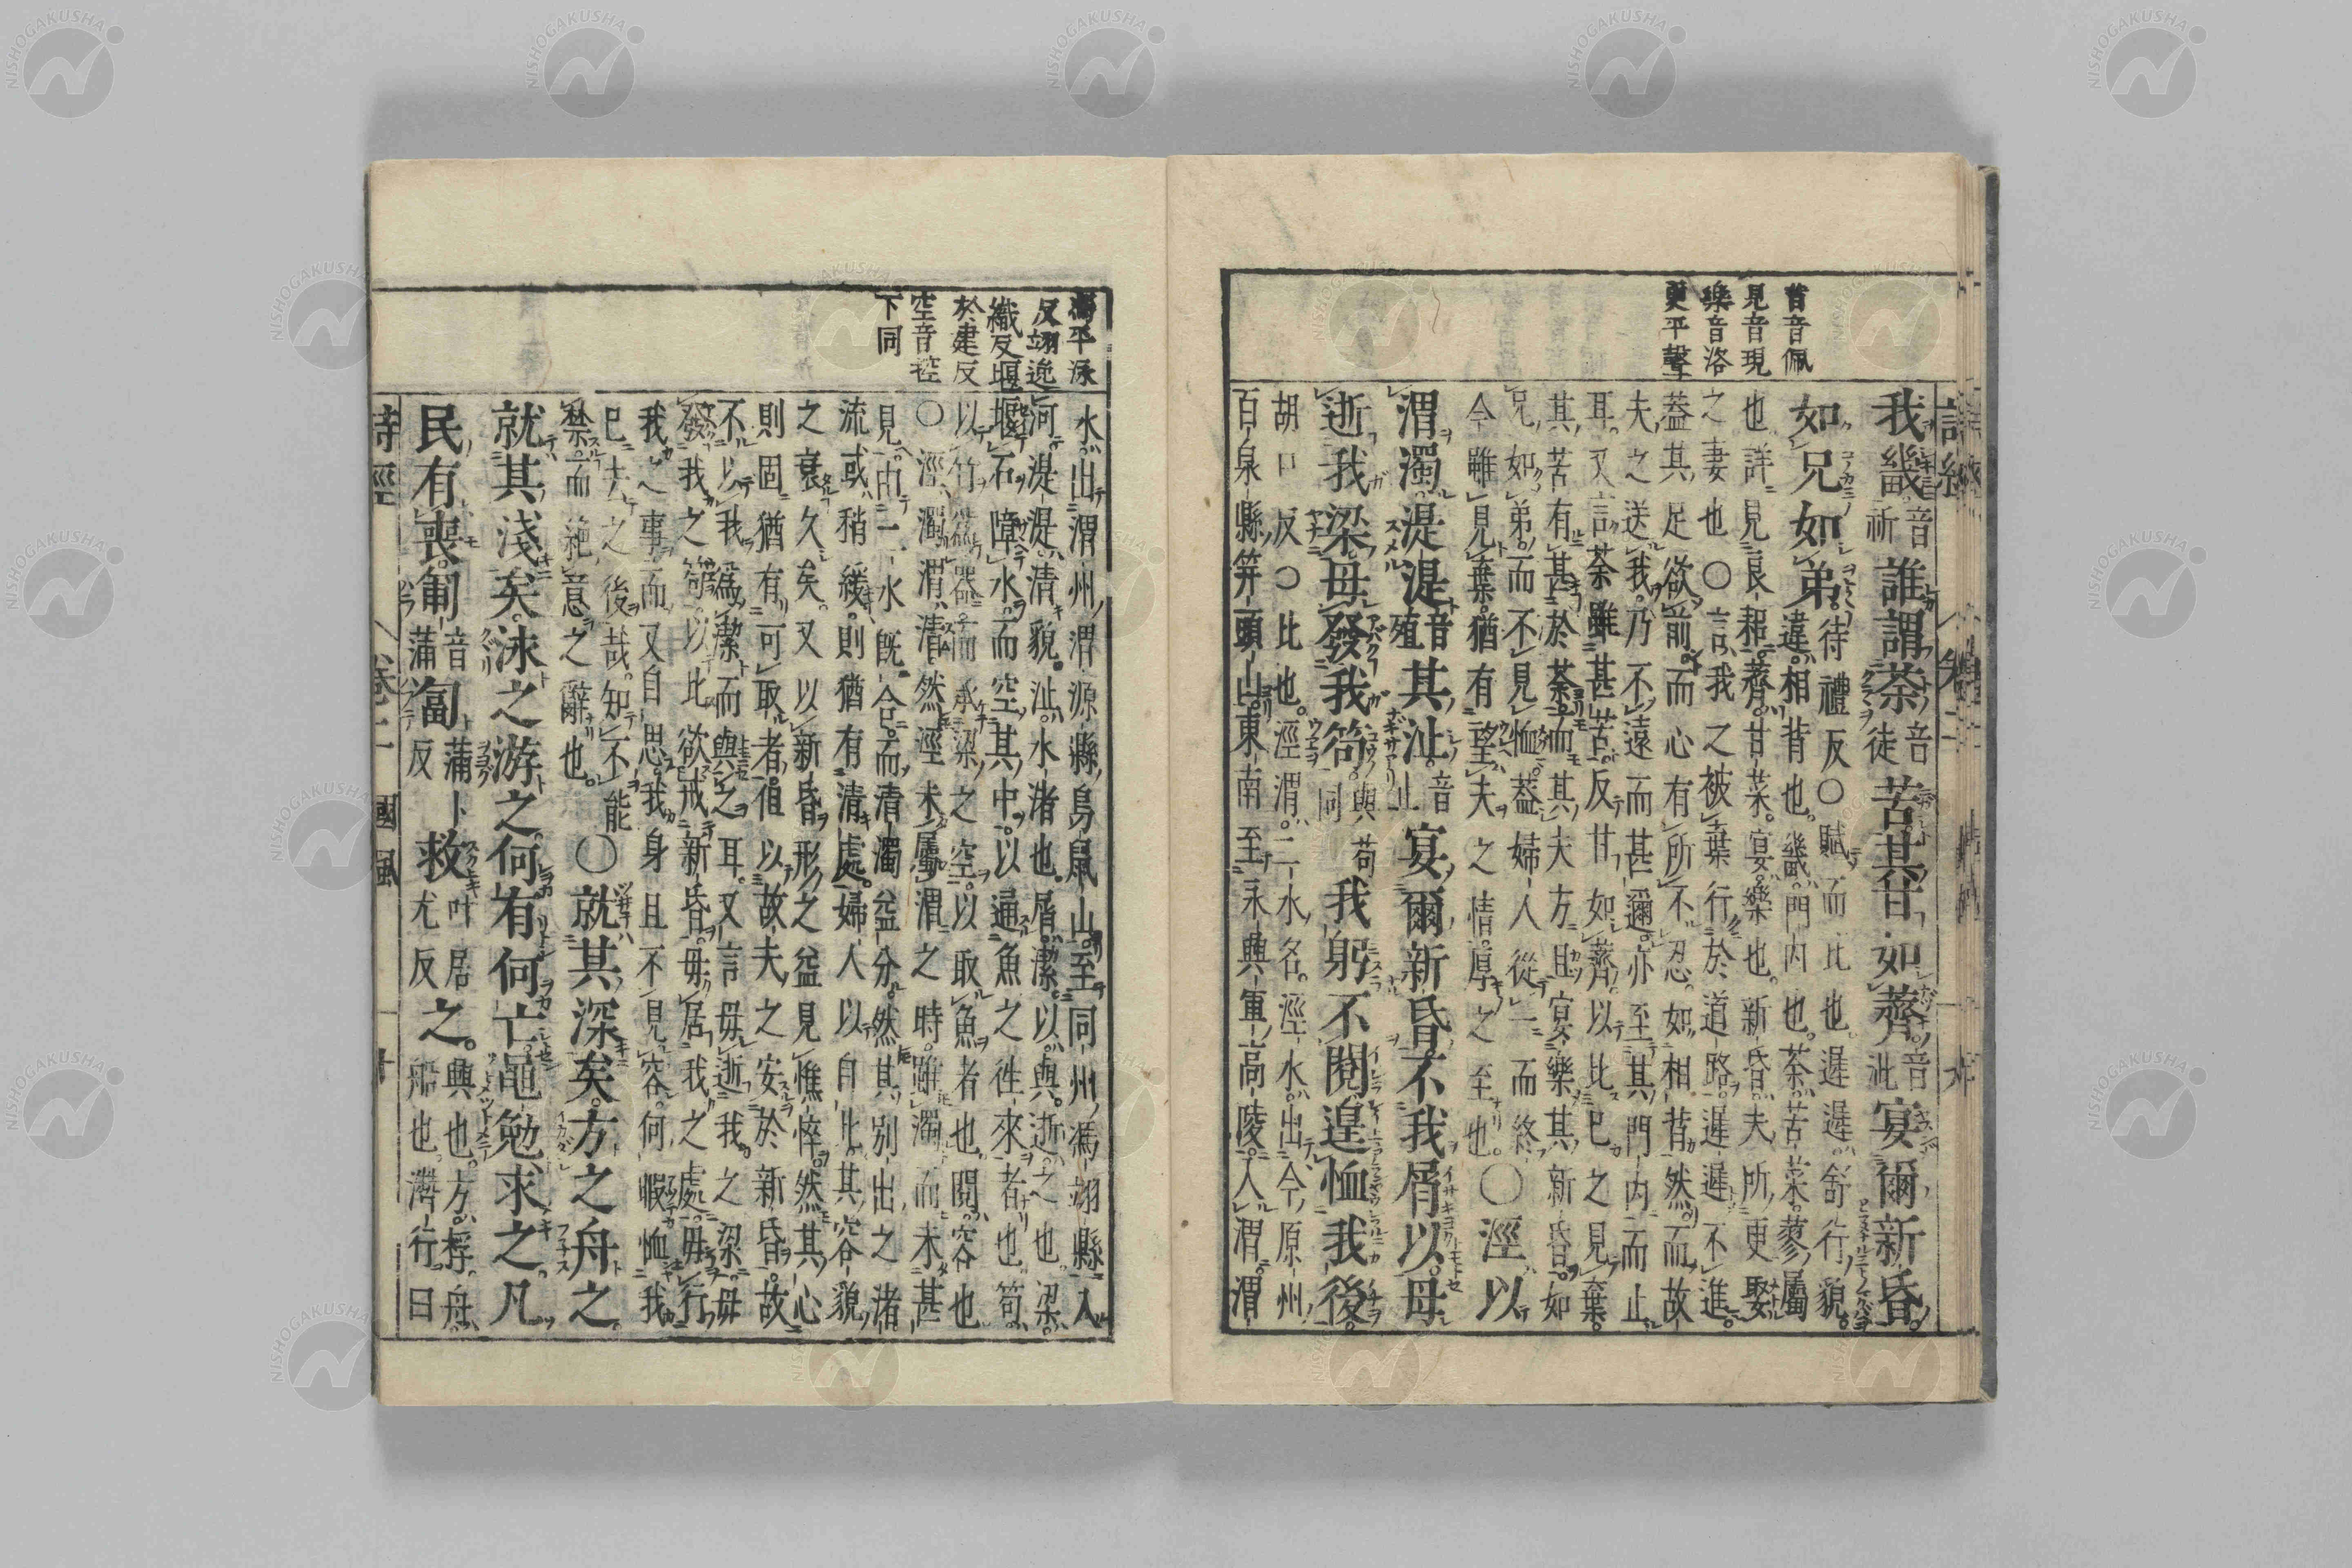 背音佩
見音現
樂音洛
更平聲
我畿音祈誰謂荼音徒苦其甘如薺音泚宴爾新昏。
如兄如弟。待禮反○賦而比也。遲遲舒行貌。
違。相背也。畿。門内也。荼。苦菜。蓼屬
也詳見良耜薺。甘菜。宴。樂也。新昏。夫所更娶
之妻也○言我之被棄行於道路。遲遲不進。
蓋其足欲前。而心有所不忍。如相背然。而故
夫之送我。乃不遠而甚邇。亦至其門内而止
耳。又言荼雖甚苦。反甘如薺。以比已之見棄。
其苦有甚於荼。而其夫方且宴樂其新昏。如
兄如弟。而不見恤。蓋婦人從一而終。
今雖見棄。猶有望夫之情。厚之至也。○涇以
渭濁。湜湜音殖其沚。音止宴爾新昏。不我屑以。毋
逝我梁。毋發我笱。與苟同我躬不閱。遑恤我後。
胡口反○比也。涇渭。二水名。涇水。出今原州
百泉縣笄頭山。東南至永興軍高陵。入渭。渭
馮平泳
反翊逸
織反堰
於建反
空音控
下同
水。出渭州渭源縣鳥鼠山。至同州馮翊縣。入
河。湜湜。清貌。沚。水渚也。屑。潔。以。與。逝。之也。梁。
堰石障水。而空其中。以通魚之往來者也。笱。
以竹爲器。而承梁之空。以取魚者也。閱。容也
○涇濁渭清。然涇未屬渭之時。雖濁而未甚
見。由二水既合。而清濁益分。然其別出之渚
流或稍緩。則猶有清處。婦人以自比。其容貌
之衰久矣。又以新昏形之。益見憔悴。然其心
則固猶有可取者。但以故夫之安於新昏。故
不以我爲潔而與之耳。又言毋逝我之梁。毋
發我之笱。以比欲戒新昏。毋居我之處。毋行
我之事。而又自思。我身且不見容。何暇恤我
已去之後哉。知不能
禁。而絶意之辭也。○就其深矣。方之舟之。
就其淺矣。泳之游之。何有何亡。黽勉求之。凡
民有喪。匍音蒲匐蒲卜反救叶居尤反之。興也。方。桴。舟。船也。潛行曰
詩經
卷二
國風
十